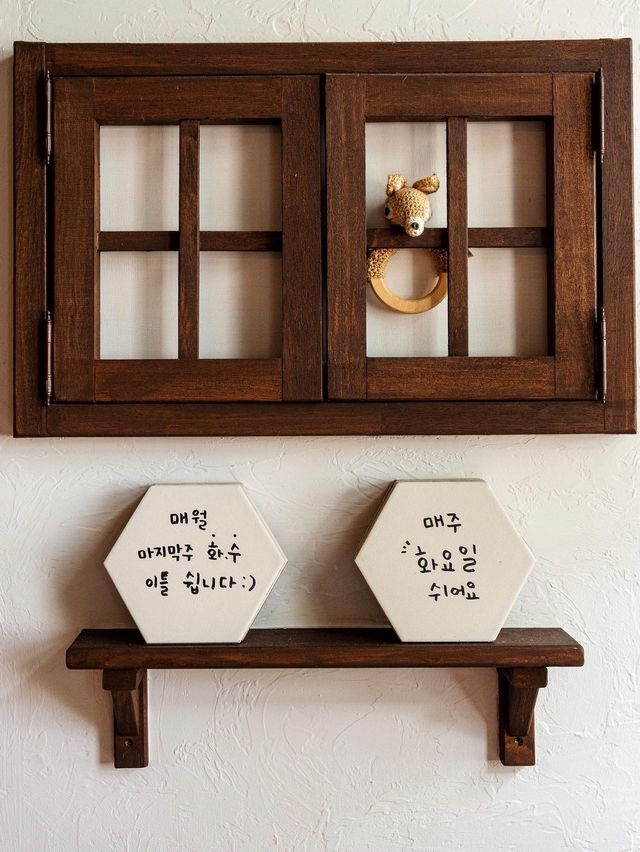 매월
마지막주 화.수
이틀 쉽니다:)
매주
화요일
쉬어요